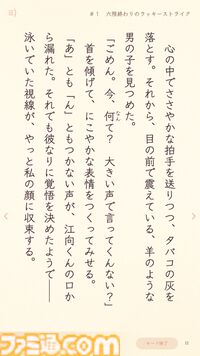 #1 六限終わりのラッキーストライク
心の中でささやかな拍手を送りつつ、タバコの灰を
落とす。それから、目の前で震えている、羊のような
男の子を見つめた。
「ごめん。今、何て? 大きい声で言ってくんない?」
首を傾げて、にこやかな表情をつくってみせる。
「あ」とも「ん」ともつかない声が、江向くんの口か
ら漏れた。それでも彼なりに覚悟を決めたようで——
泳いでいた視線が、やっと私の顔に収束する。
ファミ通.com